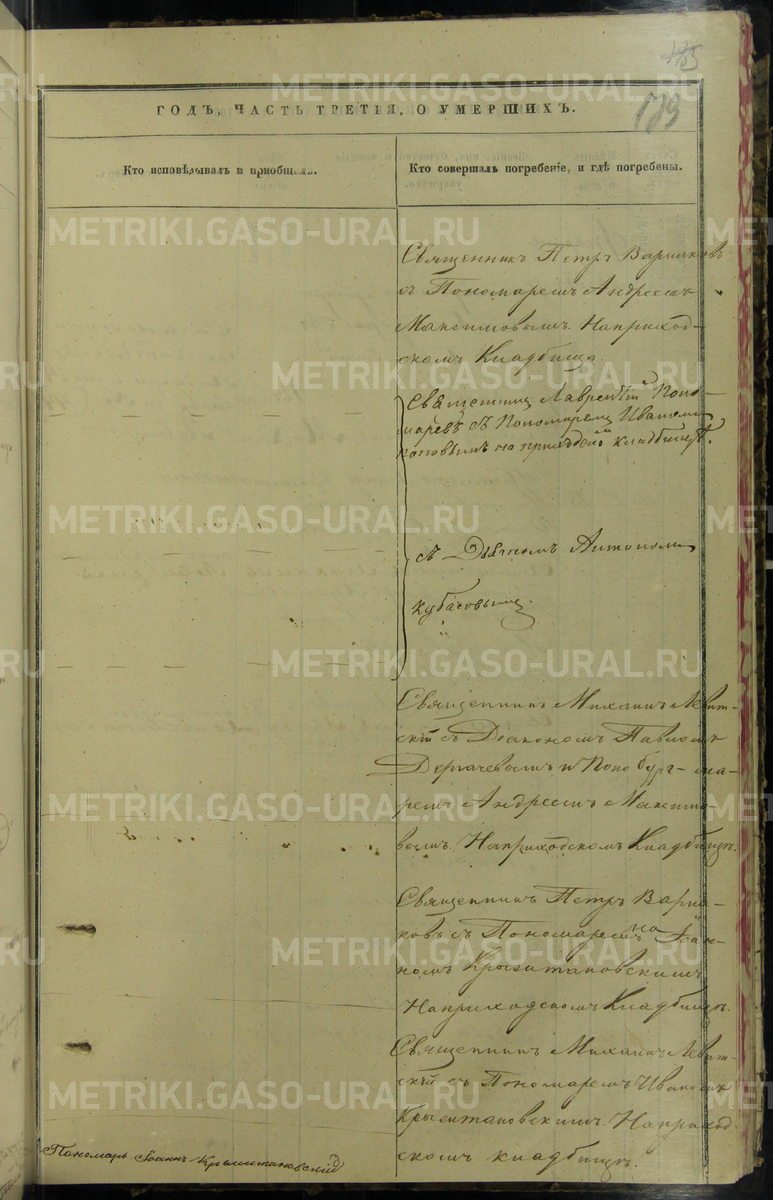 183
ГОДЪ, ЧАСТЬ ТРЕТІЯ, О УМЕРШИХЪ.
Кто исповѣдывалъ и приобщалъ.
Кто совершалъ погребеніе, и гдѣ погребены.
Священникъ Петръ
съ Пономаремъ Андреемъ
Максимовымъ. На приход-
скомъ Кладбищѣ.
Священникъ Лаврентій Поно-
маревъ съ Пономаремъ Иваномъ
Поповымъ на приходскомъ кладбищѣ.
съ Дьячкомъ Антономъ
Кубасовымъ.
Священникъ Михаилъ Левит-
скій съ Діакономъ Павломъ
Дергачевымъ и Поно-
ремъ Андреемъ Максимо-
вымъ. На приходскомъ Кладбищѣ.
Священникъ Петръ
съ Пономаремъ Іоан-
номъ Крыжановскимъ
На приходскомъ Кладбищѣ.
Священникъ Михаилъ Левит-
скій съ Пономаремъ Иваномъ
На приход-
скомъ кладбищѣ.
Пономарь Іоаннъ
METRIKI.GASO-URAL.RU